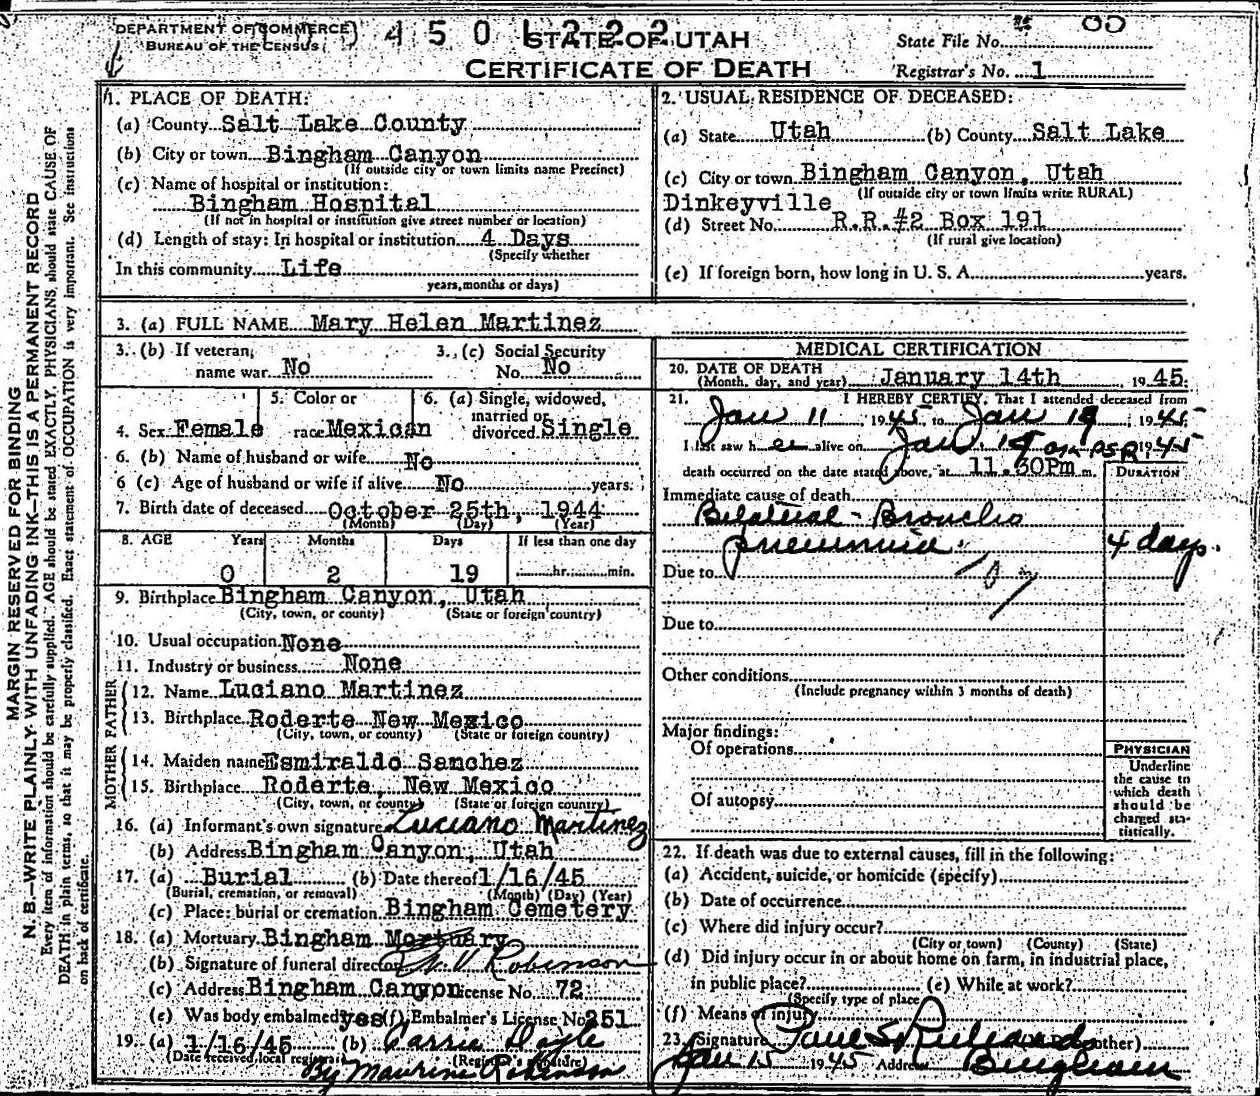 DEPARTMENT OF COMMERCE
BUREAU OF THE CENSUS
4 5 0 1 2 2 2
STATE OF UTAH
CERTIFICATE OF DEATH
State File No.
Registrar's No. 1
MARGIN RESERVED FOR BINDING
N. B.—WRITE PLAINLY WITH UNFADING INK—THIS IS A PERMANENT RECORD
Every item of information should be carefully supplied. AGE should be stated EXACTLY. PHYSICIANS should state CAUSE OF
DEATH in plain terms, so that it may be properly classified. Exact statement of OCCUPATION is very important. See instructions
on back of certificate.
1. PLACE OF DEATH:
(a) County Salt Lake County
(b) City or town Bingham Canyon
(If outside city or town limits name Precinct)
(c) Name of hospital or institution:
Bingham Hospital
(If not in hospital or institution give street number or location)
(d) Length of stay: In hospital or institution 4 Days
(Specify whether
In this community Life
years, months or days)
2. USUAL RESIDENCE OF DECEASED:
(a) State Utah (b) County Salt Lake
(c) City or town Bingham Canyon, Utah
(If outside city or town limits write RURAL)
Dinkeyville
(d) Street No. R.R.#2 Box 191
(If rural give location)
(e) If foreign born, how long in U. S. A. years.
3. (a) FULL NAME Mary Helen Martinez
3. (b) If veteran, name war No
3. (c) Social Security No. No
4. Sex Female
5. Color or race Mexican
6. (a) Single, widowed, married or divorced Single
6. (b) Name of husband or wife No
6 (c) Age of husband or wife if alive No years.
7. Birth date of deceased October 25th, 1944
(Month) (Day) (Year)
8. AGE Years Months Days If less than one day
0 2 19 hr. min.
9. Birthplace Bingham Canyon, Utah
(City, town, or county) (State or foreign country)
10. Usual occupation None
11. Industry or business None
FATHER
12. Name Luciano Martinez
13. Birthplace Roderte New Mexico
(City, town, or county) (State or foreign country)
MOTHER
14. Maiden name Esmiraldo Sanchez
15. Birthplace Roderte, New Mexico
(City, town, or county) (State or foreign country)
16. (a) Informant's own signature Luciano Martinez
(b) Address Bingham Canyon, Utah
17. (a) Burial (b) Date thereof 1/16/45
(Burial, cremation, or removal) (Month) (Day) (Year)
(c) Place: burial or cremation Bingham Cemetery
18. (a) Mortuary Bingham Mortuary
(b) Signature of funeral director Robinson
(c) Address Bingham Canyon License No. 72
(e) Was body embalmed yes (f) Embalmer's License No 251
19. (a) 1/16/45 (b) Carrie Dayle
(Date received local registrar)
By Maurine Robinson
MEDICAL CERTIFICATION
20. DATE OF DEATH
(Month, day, and year) January 14th, 1945.
21. I HEREBY CERTIFY, That I attended deceased from
Jan 11, 1945 to Jan 14, 1945
I last saw her alive on Jan 14 1945
death occurred on the date stated above, at 11.30Pm m. DURATION
Immediate cause of death
Bilateral - Broncho
pneumonia 4 days.
Due to
Due to
Other conditions
(Include pregnancy within 3 months of death)
Major findings:
Of operations
Of autopsy
PHYSICIAN
Underline
the cause to
which death
should be
charged sta-
tistically.
22. If death was due to external causes, fill in the following:
(a) Accident, suicide, or homicide (specify)
(b) Date of occurrence
(c) Where did injury occur?
(City or town) (County) (State)
(d) Did injury occur in or about home on farm, in industrial place,
in public place? (e) While at work?
(Specify type of place)
(f) Means of injury
23. Signature Paul S. other)
Jan 15 1945 Address Bingham